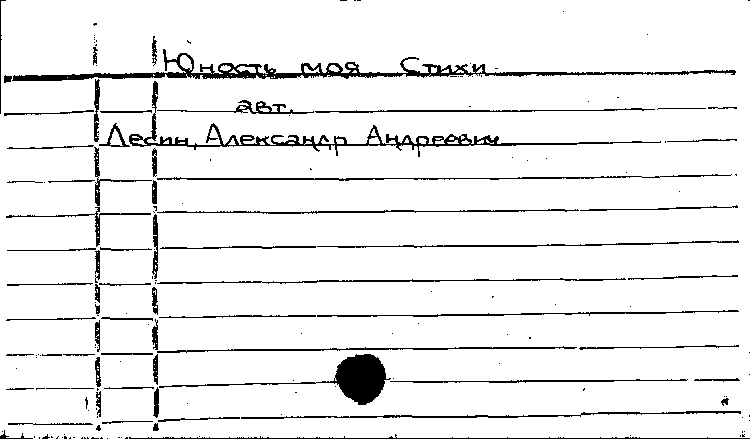 Юность моя Стихи
авт.
Лесин, Александр Андреевич